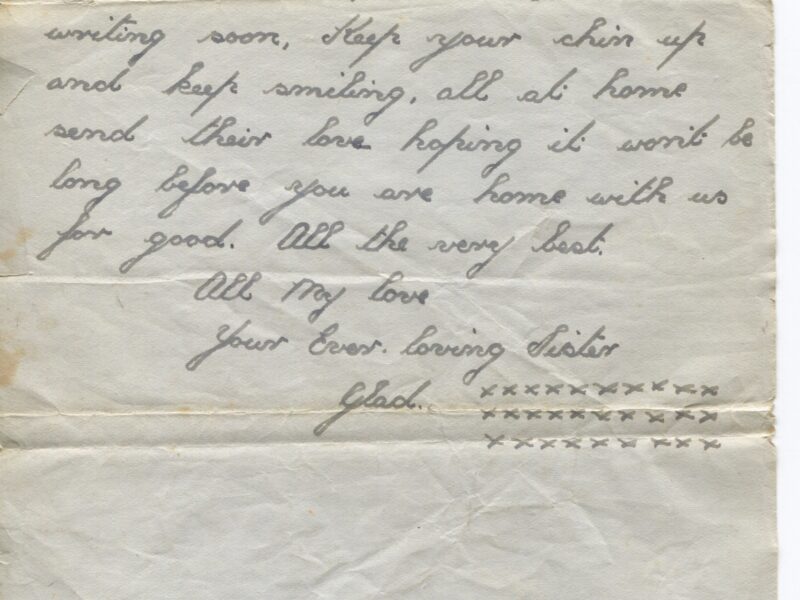 writing soon, Keep your chin up
and keep smiling, all at home
send their love hoping it wont be
long before you are home with us
for good. All the very best.
All My love
Your Ever. loving Sister
Glad. xxxxxxxxxxx
xxxxxxxxxxx
xxxxxxxxxx